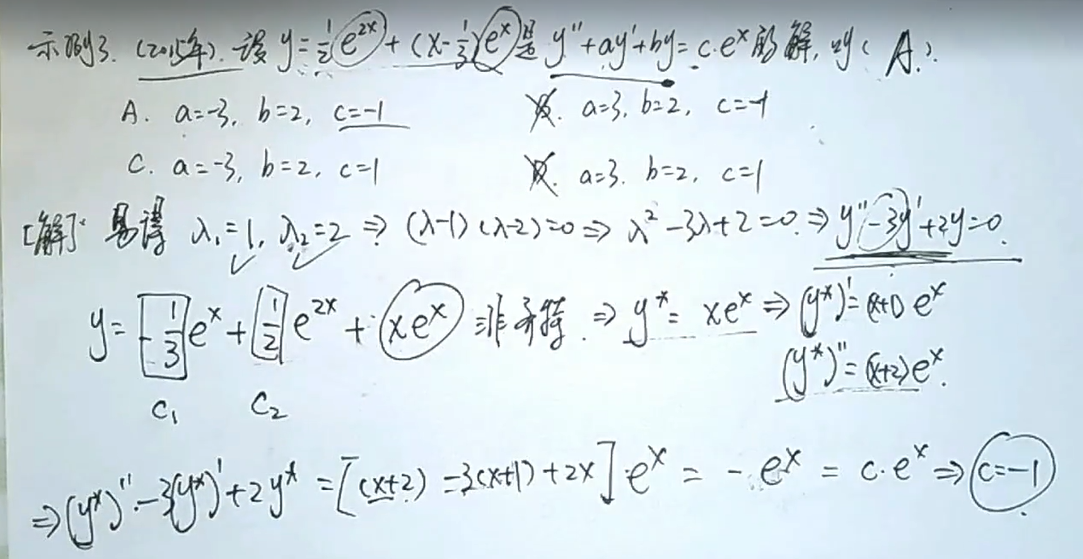 示例3.(2015年).设 y=½e^{2x}+(x-⅓)e^x是 y''+ay'+by=c·e^x的解,则( A ).
A. a=-3, b=2, c=-1 B. a=3, b=2, c=-1
C. a=-3, b=2, c=1 D. a=3. b=2, c=1
[解]: 易得 λ₁=1, λ₂=2 ⇒ (λ-1)(λ-2)=0 ⇒ λ²-3λ+2=0. ⇒ y''-3y'+2y=0.
y= -⅓ e^x + ½ e^{2x} + xe^x 非齐特. ⇒ y*= xe^x ⇒ (y*)'=(x+1)e^x
(y*)''=(x+2)e^x.
C₁ C₂
⇒ (y*)''-3(y*)'+2y* = [(x+2)-3(x+1)+2x]·e^x = -e^x = c·e^x ⇒ c=-1.